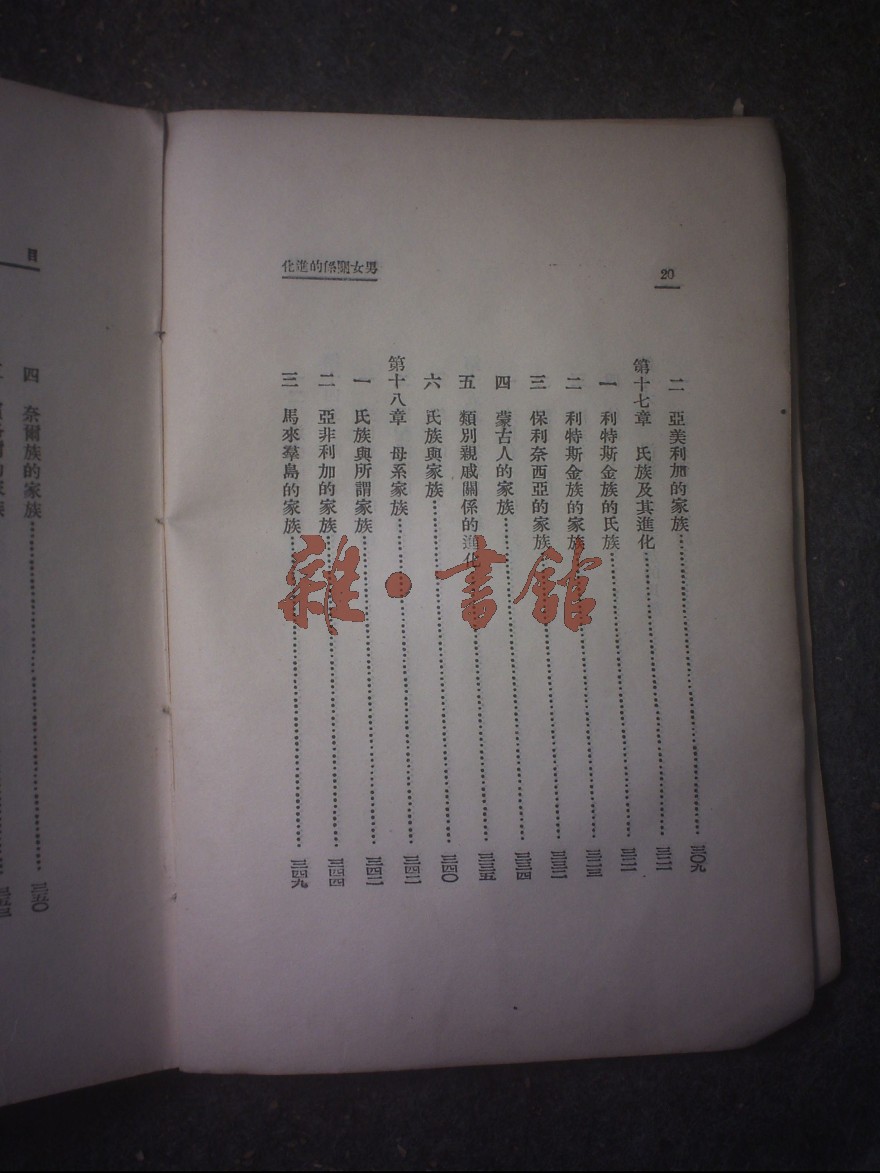 男女關係的進化
20
二 亞美利加的家族……三〇九
第十七章 氏族及其進化……
一 利特斯金族的氏族……
二 利特斯金族的家族……
三 保利奈西亞的家族……
四 蒙古人的家族……三三四
五 類別親戚關係的進化……三三五
六 氏族與家族……三四〇
第十八章 母系家族……三四二
一 氏族與所謂家族……三四二
二 亞非利加的家族……三四四
三 馬來羣島的家族……三四九
目
四 奈爾族的家族……三五〇
雜·書館